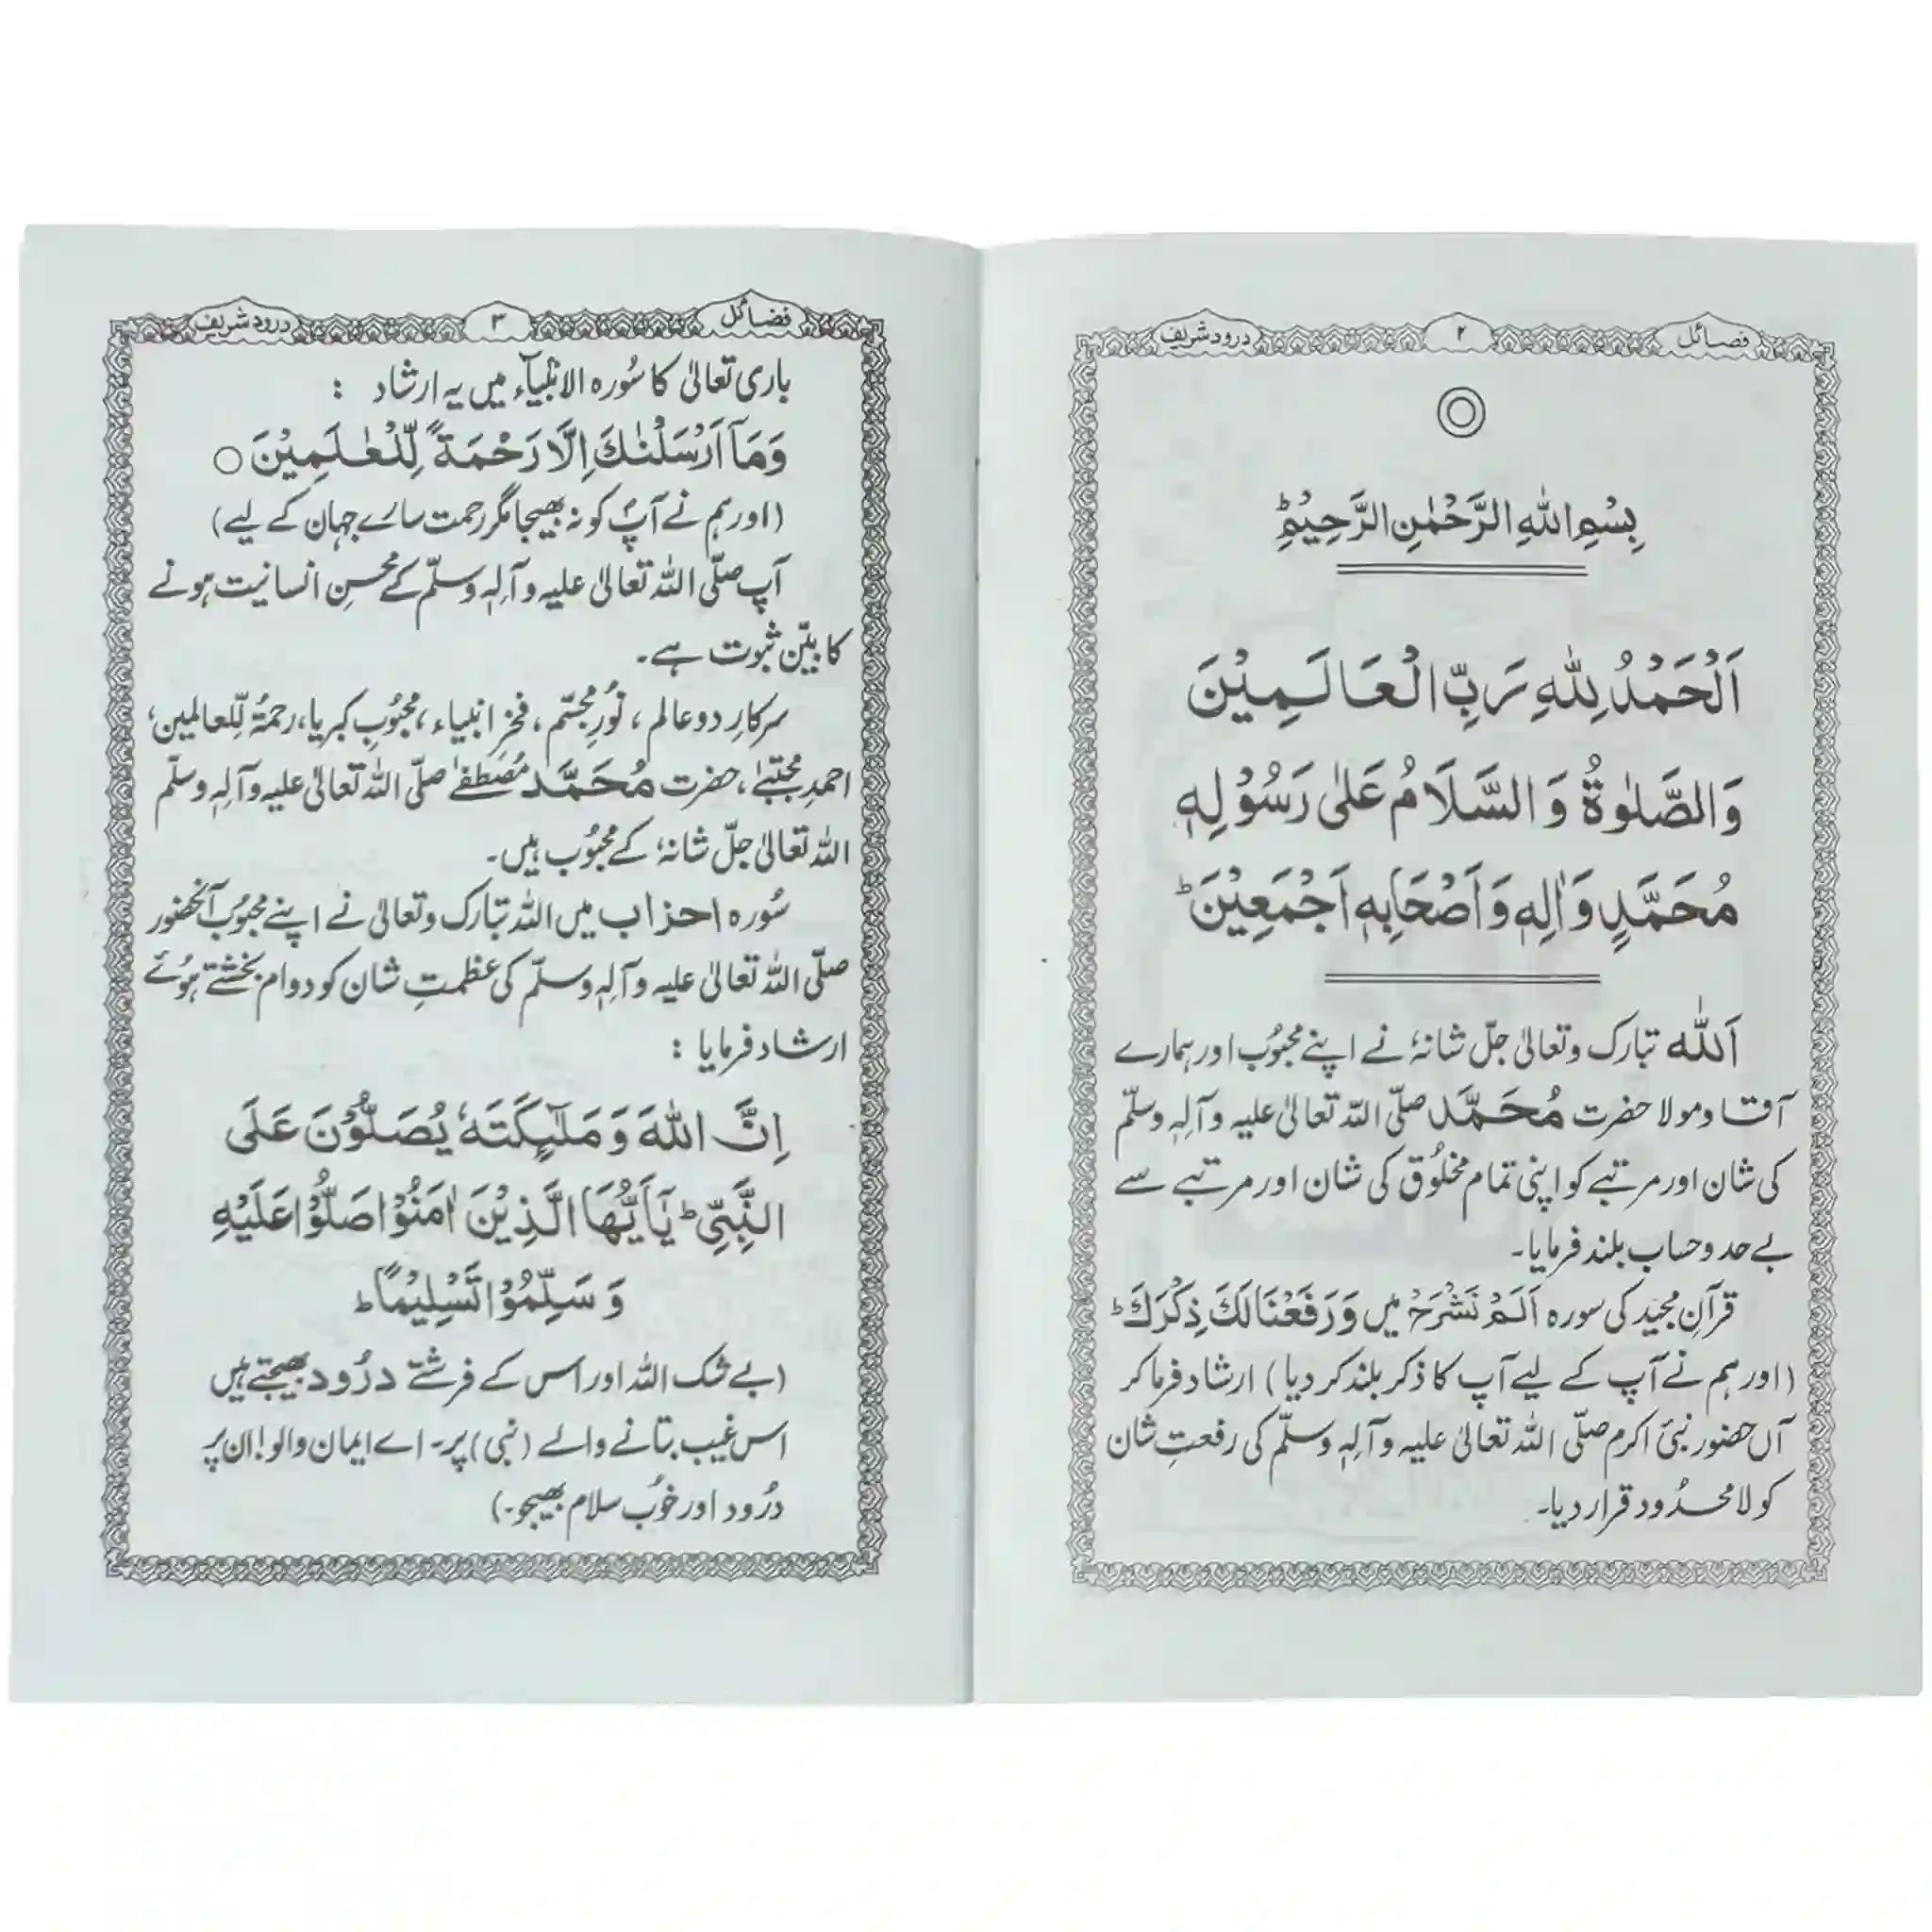 فضائل ۲ درود شریف
بِسْمِ اللهِ الرَّحْمٰنِ الرَّحِيْمِؕ
اَلْحَمْدُ لِلّٰهِ رَبِّ الْعَالَمِيْنَ
وَالصَّلٰوةُ وَالسَّلَامُ عَلٰى رَسُوْلِهٖ
مُحَمَّدٍ وَاٰلِهٖ وَاَصْحَابِهٖ اَجْمَعِيْنَؕ
اَللّٰه تبارک وتعالیٰ جلّ شانہٗ نے اپنے محبُوب اور ہمارے
آقا و مولا حضرت مُحَمَّد صلّی اللہ تعالیٰ علیہ وآلہٖ وسلّم
کی شان اور مرتبے کو اپنی تمام مخلُوق کی شان اور مرتبے سے
بے حد و حساب بلند فرمایا۔
قرآنِ مجید کی سورہ اَلَمْ نَشْرَحْ میں وَرَفَعْنَا لَكَ ذِكْرَكَؕ
(اور ہم نے آپ کے لیے آپ کا ذکر بلند کر دیا) ارشاد فرما کر
آں حضور نبیٔ اکرم صلّی اللہ تعالیٰ علیہ وآلہٖ وسلّم کی رفعتِ شان
کو لا محدُود قرار دیا۔
فضائل ۳ درود شریف
باری تعالیٰ کا سُورہ الانبیآء میں یہ ارشاد :
وَمَآ اَرْسَلْنٰكَ اِلَّا رَحْمَةً لِّلْعٰلَمِيْنَ ○
(اور ہم نے آپؐ کو نہ بھیجا مگر رحمت سارے جہان کے لیے)
آپ صلّی اللہ تعالیٰ علیہ وآلہٖ وسلّم کے محسنِ انسانیت ہونے
کا بیّن ثبوت ہے۔
سرکارِ دو عالم ، نُورِ مجسّم ، فخرِ انبیاء ، محبُوبِ کبریا، رحمۃٌ لّلعالمین،
احمدِ مجتبےٰ ، حضرت مُحَمَّد مُصطفےٰ صلّی اللہ تعالیٰ علیہ وآلہٖ وسلّم
اللہ تعالیٰ جلّ شانہٗ کے محبُوب ہیں۔
سُورہ احزاب میں اللہ تبارک وتعالیٰ نے اپنے محبُوب آنحضور
صلّی اللہ تعالیٰ علیہ وآلہٖ وسلّم کی عظمتِ شان کو دوام بخشتے ہُوئے
ارشاد فرمایا :
اِنَّ اللهَ وَمَلٰٓئِكَتَهٗ يُصَلُّوْنَ عَلَى
النَّبِيِّؕ يٰٓاَيُّهَا الَّذِيْنَ اٰمَنُوْا صَلُّوْا عَلَيْهِ
وَسَلِّمُوْا تَسْلِيْمًاؕ
(بے شک اللہ اور اس کے فرشتے درُود بھیجتے ہیں
اس غیب بتانے والے (نبی) پر۔ اے ایمان والو! ان پر
درُود اور خُوب سلام بھیجو۔)